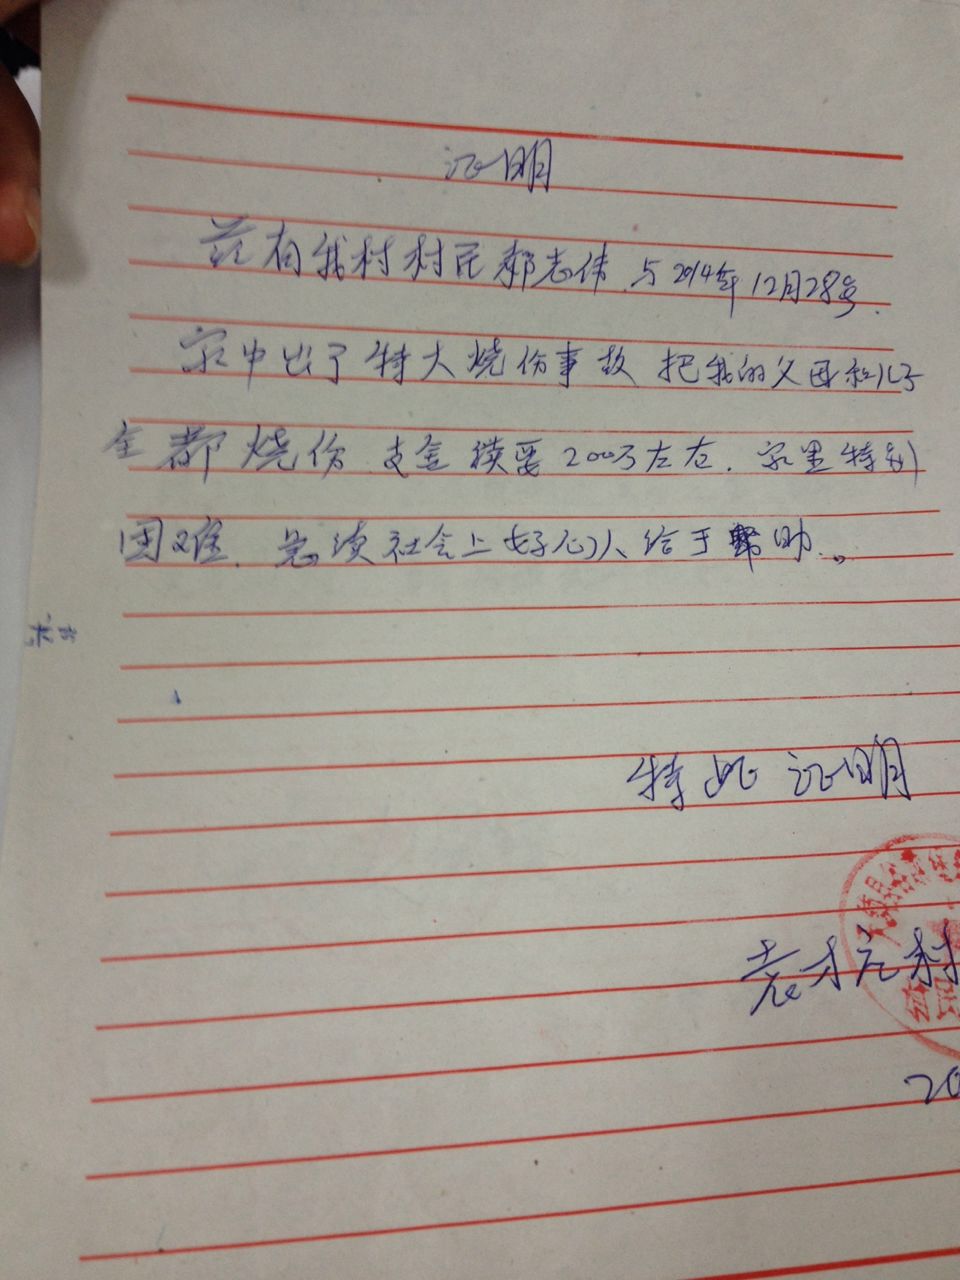 证明
兹有我村村民郝志伟.与2014年12月28号.
家中出了特大烧伤事故 把我的父母和儿子
全都烧伤 支金须要200万左右.家里特别
困难.急须社会上好心人给于帮助.。
特此证明
袁才庄村
20